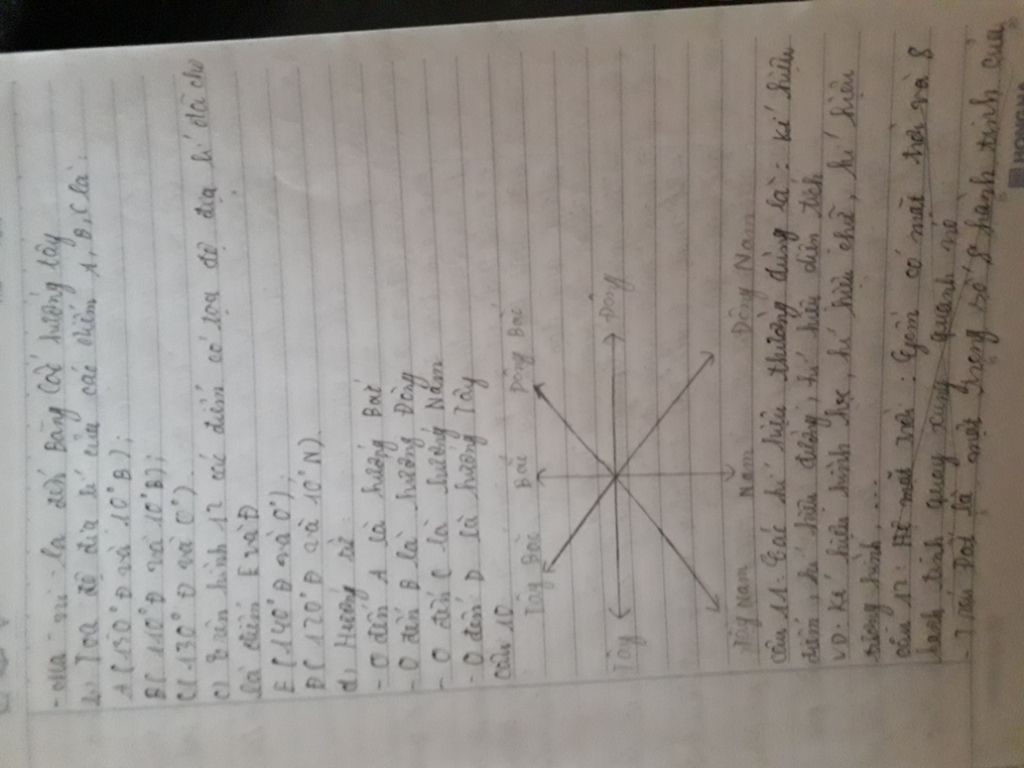 - ma ni la đến Băng Cốc hướng tây
b) Tọa độ địa lí của các điểm A, B, C là:
A (130° Đ và 10° B);
B( 110° Đ và 10° B);
C( 130° Đ và 0°).
c) Trên hình 12 các điểm có tọa độ địa lí đã cho
là điểm E và Đ
E (140° Đ và 0°);
Đ( 120° Đ và 10° N).
d) Hướng từ
- O đến A là hướng Bắc
- O đến B là hướng Đông
- O đến C là hướng Nam
- O đến D là hướng Tây
Câu 10
Tây Bắc Bắc Đông Bắc
Tây Đông
Tây Nam Nam Đông Nam
Câu 11: Các kí hiệu thường dùng là: kí hiệu
điểm, kí hiệu đường, kí hiệu diện tích
VD: Kí hiệu hình học, kí hiệu chữ, kí hiệu
tượng hình,...
câu 12: Hệ mặt trời: Gồm có mặt trời và 8
hành tinh quay xung quanh nó
- Trái Đất là một trong số 8 hành tinh của